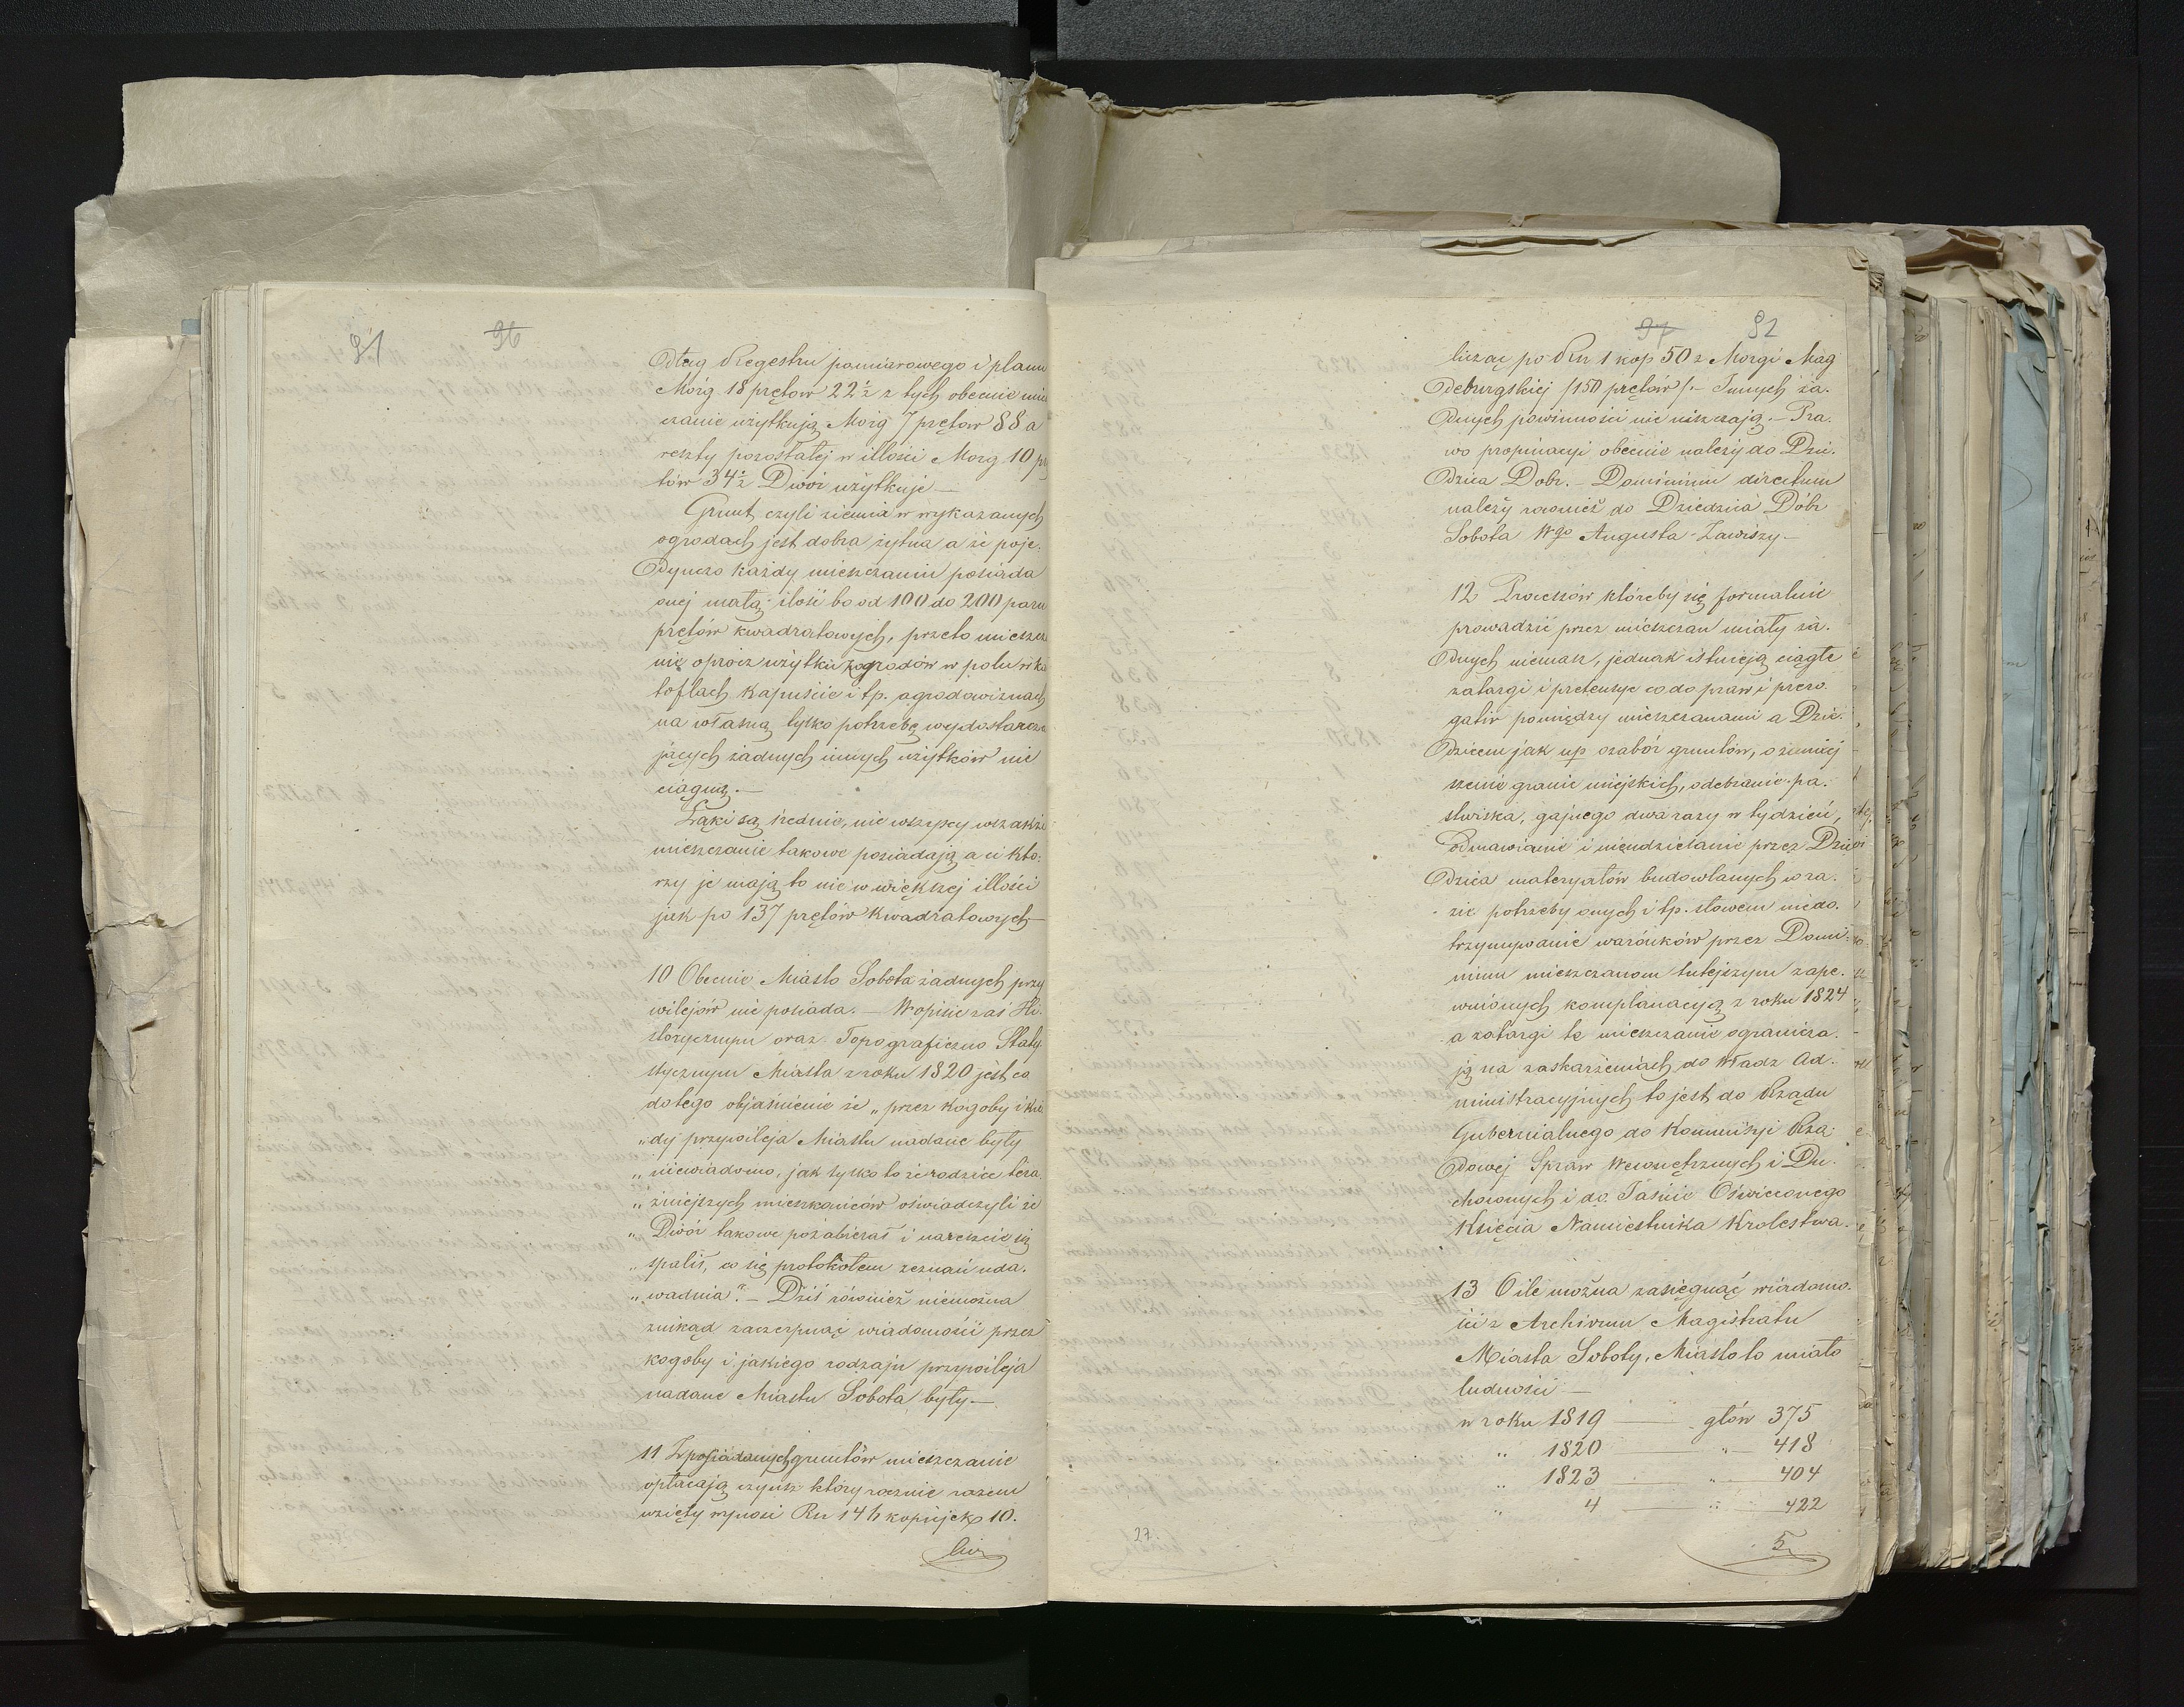 91 96
dług Regestru pomiarowego i planu
Morg 18 prętow 22½ z tych obecnie mie
szczanie użytkują Morg 7 prętow 88 a
reszty pozostałej w illości Morg 10 prę
tów 34½ Dwór użytkuje —
Grunt czyli ziemia w wykazanych
ogrodach jest dobra żytna a że poje.
dynczo każdy mieszczanin posiada
onej małą ilość bo od 100 do 200 paru
prętów kwadratowych, przeto mieszcza
nie oprócz użytku z ogrodów w polu w ka
toflach kapuście i tp. ogrodowiznach
na własną tylko potrzebę wydostarcza
jących żadnych innych użytków nie
ciągną. —
Łąki są średnie, nie wszyscy wszakże
mieszczanie takowe posiadają a ci któ.
rzy je mają to nie w większej illości
jak po 137 prętów kwadratowych —
10 Obecnie Miasto Sobota żadnych przy
wilejów nie posiada. — W opisie zaś Hi.
storycznym oraz Topograficzno Staty
stycznym Miasta z roku 1820 jest co
do tego objaśnienie że „ przez kogoby i kie
„ dy przywileja Miastu nadane były
„ niewiadomo, jak tylko to że rodzice tera.
„ źniejszych mieszkańców oświadczyli że
„ Dwór takowe pozabierał i nareszcie je
„ spalił, co się protokółem zeznań uda.
„ wadnia." — Dziś również niemożna
znikąd zaczerpnąć wiadomości przez
kogoby i jakiego rodzaju przywileja
nadane Miastu Sobota były —
11 Z posiadanych gruntów mieszczanie
opłacają czynsz który rocznie razem
wzięty wynosi Rsr 146 kopijek 10.
licz
97 92
licząc po Rsr 1 kop 50 z Morgi Mag
deburgskiej /150 prętów/. — Innych ża.
dnych powinności nie uiszczają. — Pra.
wo propinacyi obecnie należy do Dzie.
dzica Dobr. — Dominium directum
należy rownież do Dziedzica Dóbr
Sobota Wgo Augusta Zawiszy —
12 Procesów któreby się formalnie
prowadzić przez mieszczan miały ża.
dnych niemasz, jednak istnieją ciągłe
zatargi i pretensye co do praw i prero.
gatiw pomiędzy mieszczanami a Dzie.
dzicem jak np o zabór gruntów, o zmniej
szenie granic miejskich, odebranie pa.
stwiska, gajnego dwa razy w tydzień,
odmawianie i nieudzielanie przez Dzie
dzica materyałów budowlanych w ra.
zie potrzeby onych i tp. słowem niedo.
trzymywanie warónków przez Domi.
nium mieszczanom tutejszym zape.
wnionych komplanacyą z roku 1824
a zatargi te mieszczanie ogranicza.
ją na zaskarżeniach do Władz Ad.
ministracyjnych to jest do Rządu
Gubernialnego do Kommisyi Rzą.
dowej Spraw Wewnętrznych i Du.
chownych i do Jaśnie Oświeconego
Księcia Namiestnika Krolestwa.
13 O ile można zasięgnąć wiadomo.
ści z Archivum Magistratu
Miasta Soboty, Miasto to miało
ludności —
w roku 1819 — głów 375
„ 1820 — „ — 418
„ 1823 — „ — 404
„ 4 — „ — 422
5
27.